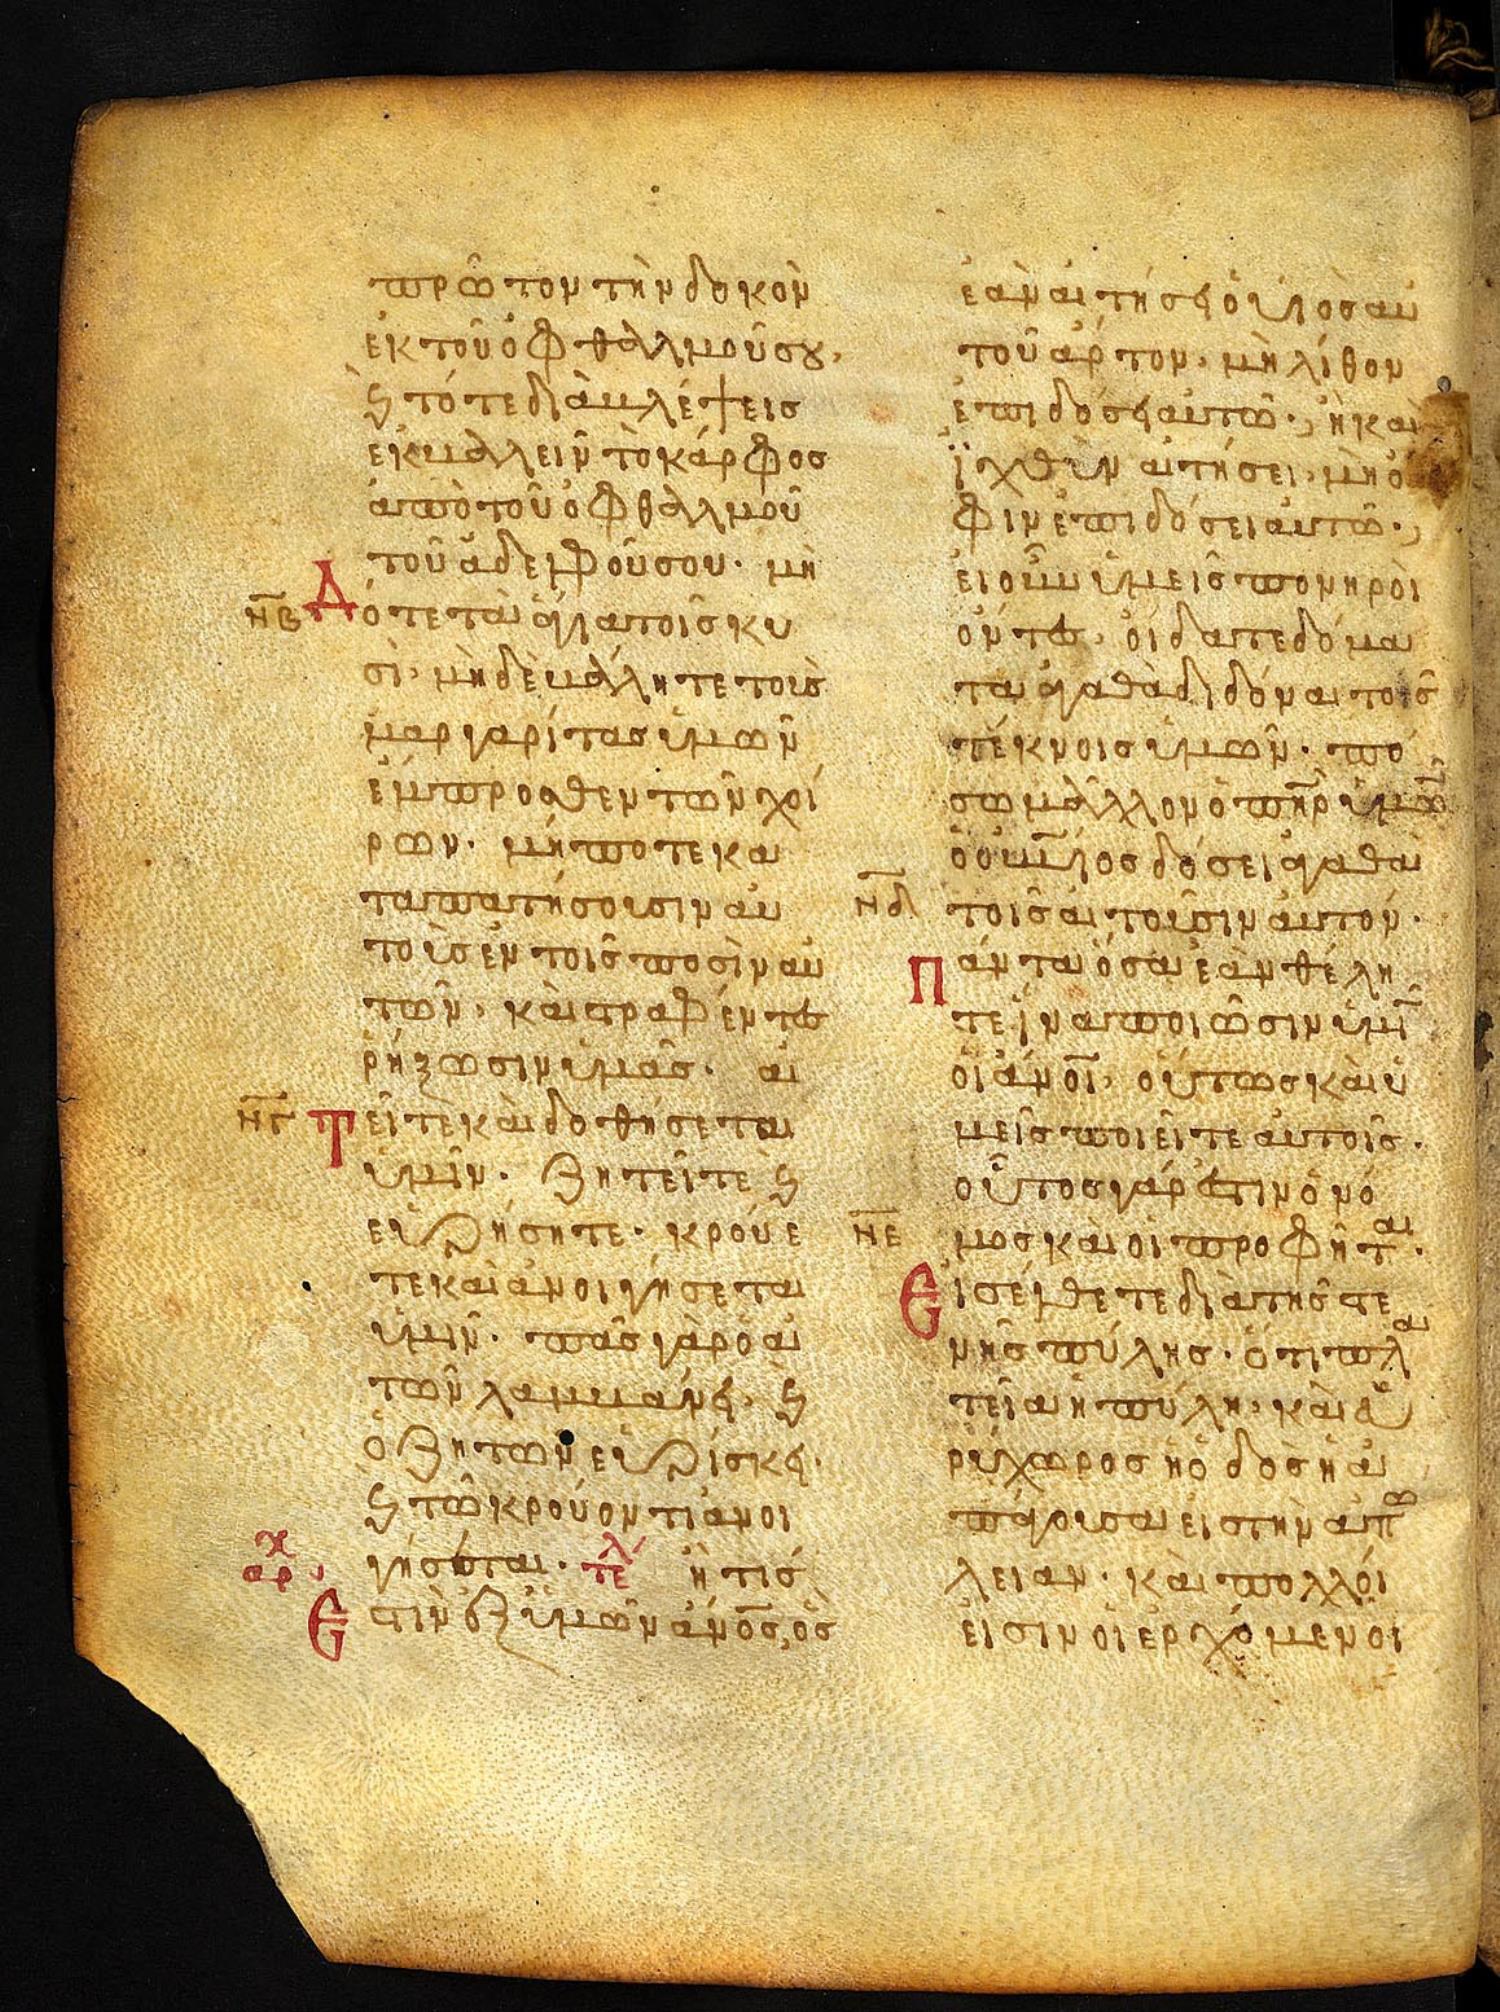 πρῶτον τὴν δοκὸν
ἐκ τοῦ ὀφθαλμοῦ σου,
ϗ τότε διαβλέψεις
ἐκβαλλεῖν τὸ κάρφος
ἀπὸ τοῦ ὀφθαλμοῦ
τοῦ ἀδελφοῦ σου· μὴ
Δότε τὰ ἅγια τοῖς κυ
νβ
σὶ, μηδὲ βάλητε τοὺς
μαργαρίτας ὑμῶν
ἔμπροσθεν τῶν χοί
ρων· μήποτε κα
ταπατήσουσιν αυ
τοὺς ἐν τοῖς ποσὶν αὐ
τῶν, καὶ στραφέντες
ῥήξωσιν ὑμᾶς· αἰ
νγ
Τεῖτε καὶ δοθήσεται
ὑμῖν· ζητεῖτε ϗ
εὑρήσητε· κρούε
τε καὶ ἀνοιγήσεται
ὑμῖν· πᾶς γὰρ ὁ αἰ
τῶν λαμβάνει, ϗ
ὁ ζητῶν εὑρίσκει·
ϗ τῶ κρούοντι ἀνοι
γήσεται· τελ ἢ τίς
αρχ
Ἐστὶν ἐξ ὑμῶν ἄνος, ὃς
ἐὰν αἰτήσει ὁ υἱὸς αυ
τοῦ ἄρτον, μὴ λίθον
ἐπιδόσει αυτῶ·, ἢ καὶ
ϊχθὺν αἰτήσει, μὴ ὄ
φιν ἐπιδόσει αυτῶ·,
εἰ οὖν ὑμεῖς πονηρὸι
ὄντες, οἴδατε δόμα
τα ἀγαθὰ διδόναι τοῖς
τέκνοις ὑμῶν· πό
σω μᾶλλον ὁ πηρ ὑμῶν
ὁ οὐνιος δόσει ἀγαθὰ
νδ
τοῖς αἰτοῦσιν αυτόν·
Πάντα ὅσα ἐὰν θέλη
τε ἵνα ποιῶσιν ὑμῖ
οἱ ἄνοι, οὕτως καὶ ὑ
μεῖς ποιεῖτε αυτοῖς·
οὗτος γάρ ἐστιν ὁ νό
νε
μος καὶ οἱ προφῆται·
Εἰσέλθετε διὰ τῆς στε
νῆς πύλης· ὅτι πλα
τεῖα ἡ πύλη, καὶ εὐ
ρύχωρος ἡ ὁδὸς ἡ ἀ
πάγουσα εἰς τὴν ἀπώ
λειαν· καὶ πολλοί
εἰσιν οἱ ἐρχόμενοι